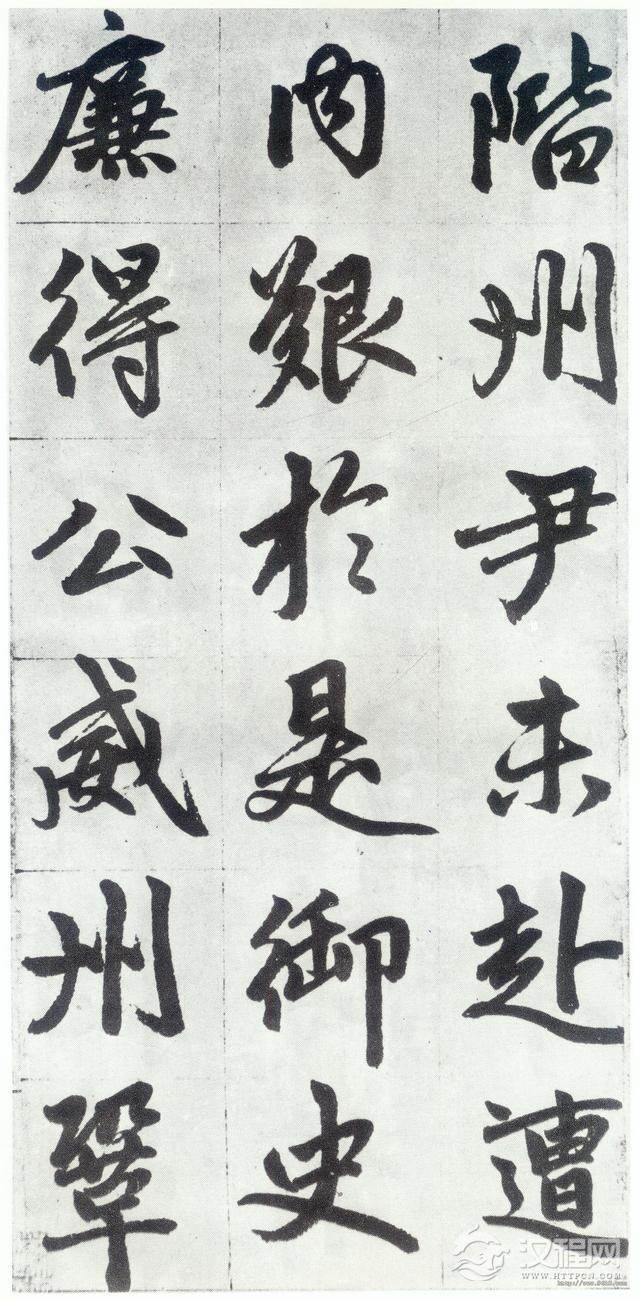 階州尹未赴遭
内艱於是御史
廉得公威州鞏
汉程网
WWW.HTTPCN.COM